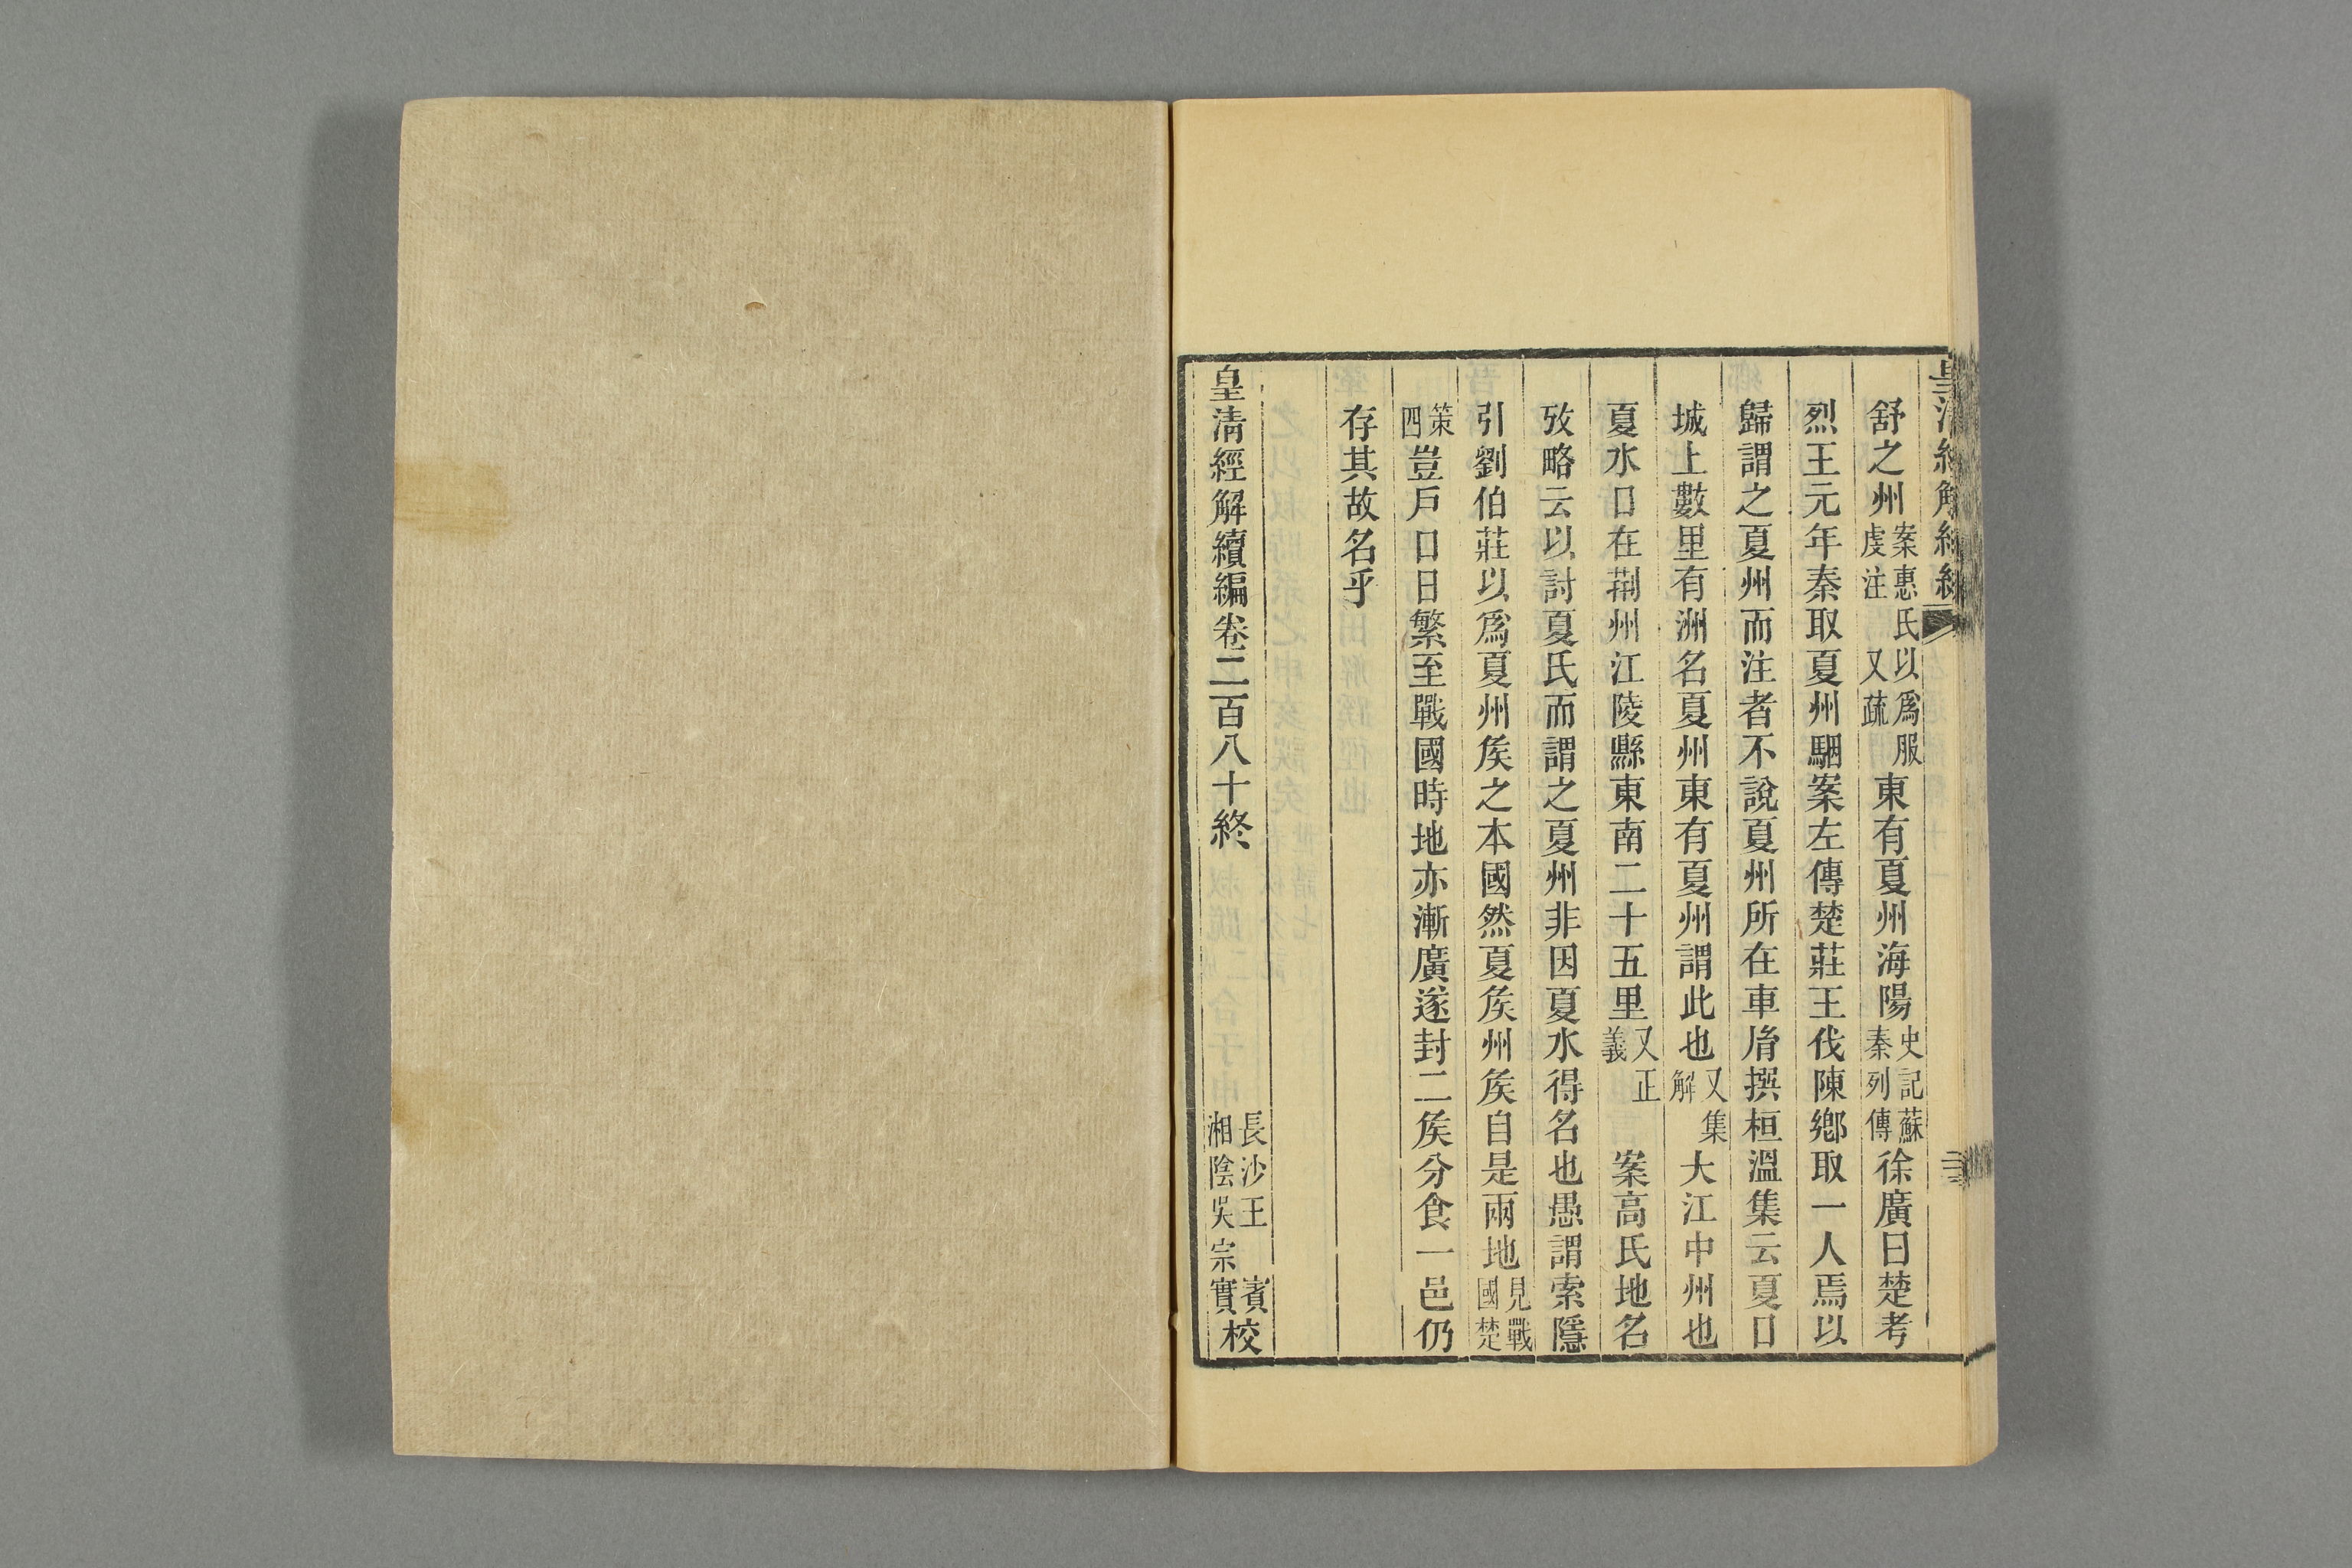 皇清經解續編
舒之州案惠氏以爲服虔注又疏東有夏州海陽史記蘇秦列傳徐廣曰楚考
烈王元年秦取夏州駰案左傳楚莊王伐陳鄉取一人焉以
歸謂之夏州而注者不說夏州所在車㣧撰桓溫集云夏口
城上數里有洲名夏州東有夏州謂此也又集解大江中州也
夏水口在荆州江陵縣東南二十五里又正義案高氏地名
攷略云以討夏氏而謂之夏州非因夏水得名也愚謂索隱
引劉伯莊以爲夏州矦之本國然夏矦州矦自是兩地見戰國楚
策四豈戶口日繁至戰國時地亦漸廣遂封二矦分食一邑仍
存其故名乎
皇清經解續編卷二百八十終
長沙王賓
湘陰吳宗實校